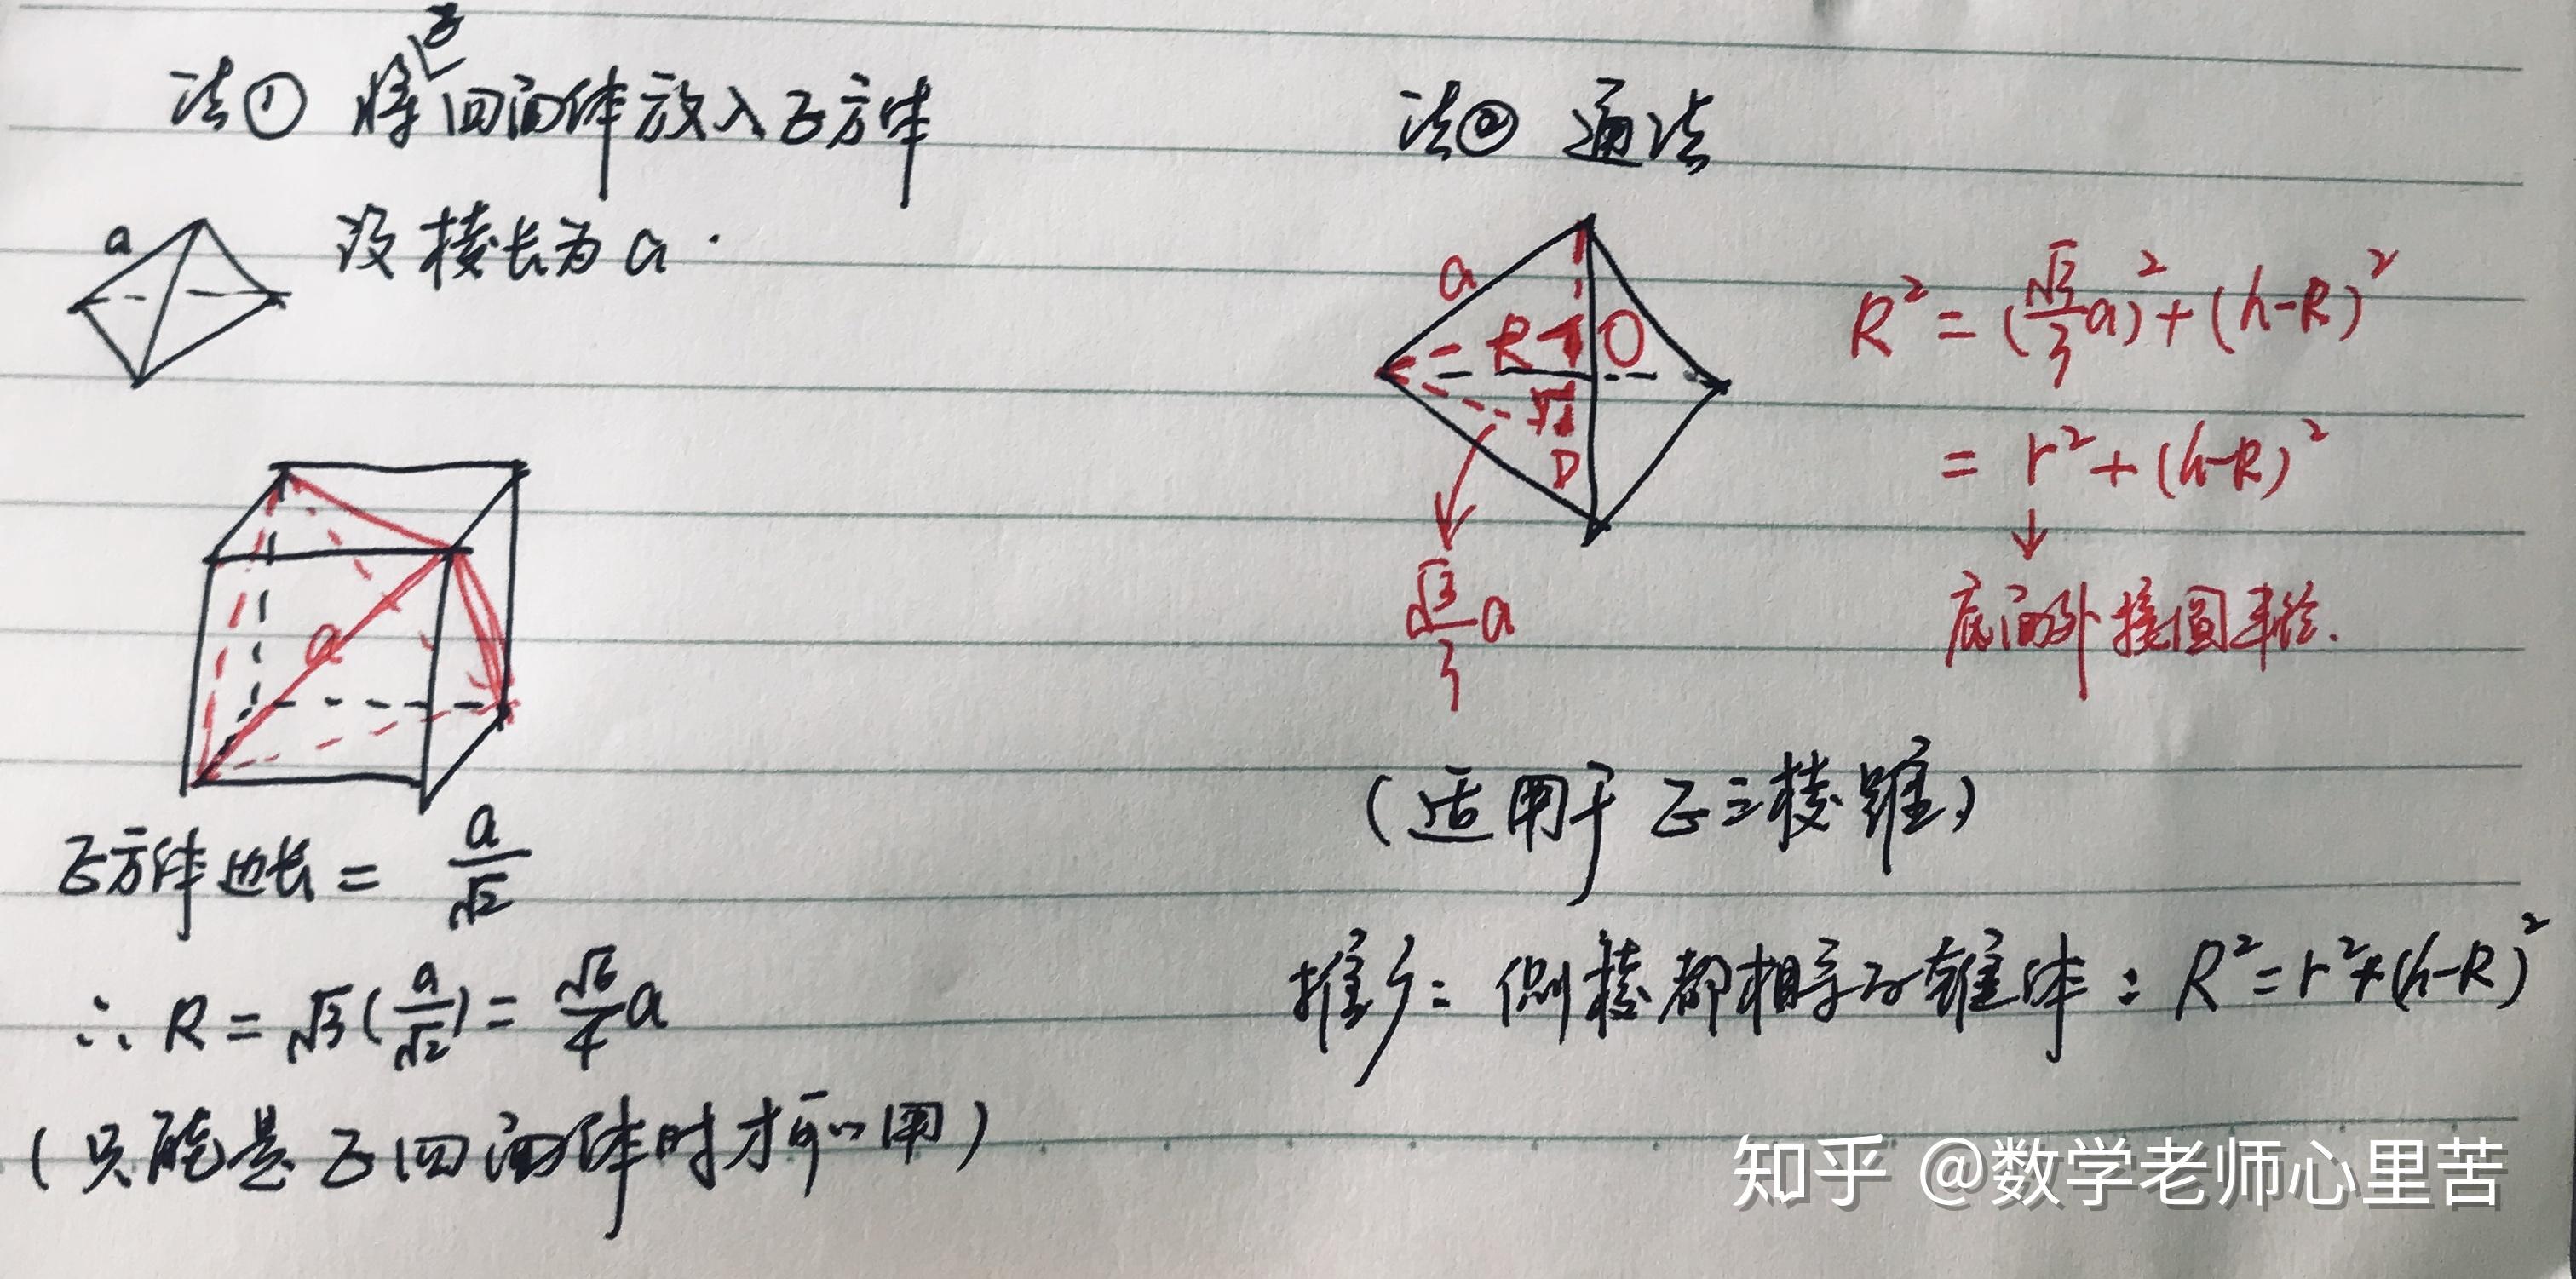 法① 将正四面体放入正方体
a 设棱长为a.
a
正方体边长 = a/√2
∴ R = √3(a/√2) = √6/4 a
(只能是正四面体时才可以用)
法② 通法
a
R O
D
√3/3 a
R² = (√3/3 a)² + (h-R)²
= r² + (h-R)²
↓
底面外接圆半径.
(适用于正三棱锥)
推广: 侧棱都相等的锥体: R² = r² + (h-R)²
知乎 @数学老师心里苦